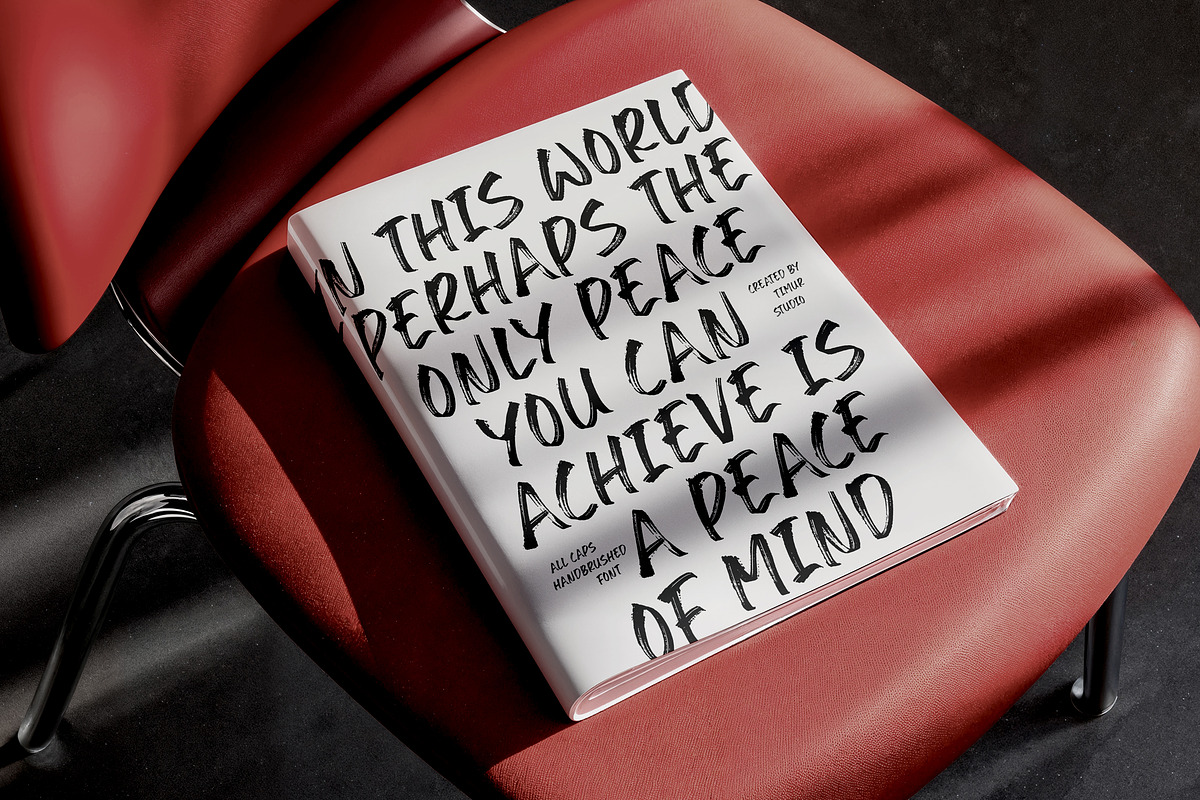 IN THIS WORLD
PERHAPS THE
ONLY PEACE
CREATED BY
TIMUR
STUDIO
YOU CAN
ACHIEVE IS
A PEACE
ALL CAPS
HANDBRUSHED
FONT
OF MIND